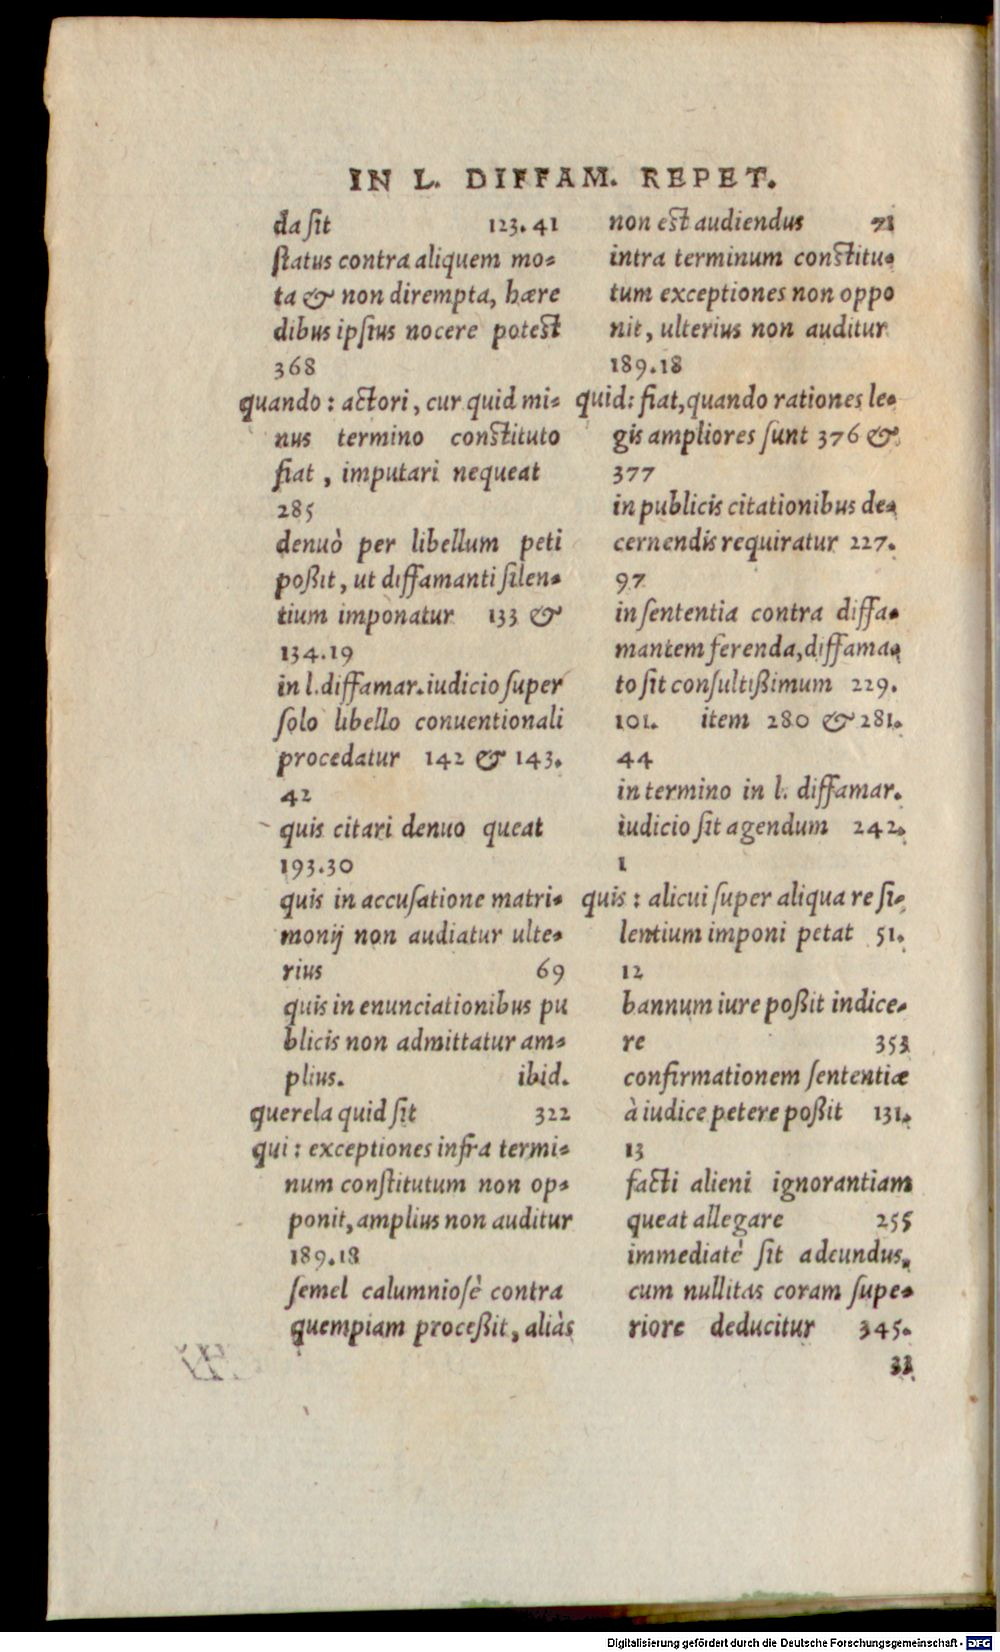 IN L. DIFFAM. REPET.
da sit 123.41
status contra aliquem mo-
ta & non dirempta, hære
dibus ipsius nocere potest
368
quando: actori, cur quid mi-
nus termino constituto
fiat, imputari nequeat
285
denuò per libellum peti
poßit, ut diffamanti silen-
tium imponatur 133 &
134.19
in l. diffamar. iudicio super
solo libello conuentionali
procedatur 142 & 143.
42
quis citari denuo queat
193.30
quis in accusatione matri-
monij non audiatur ulte-
rius 69
quis in enunciationibus pu
blicis non admittatur am-
plius. ibid.
querela quid sit 322
qui: exceptiones infra termi-
num constitutum non op-
ponit, amplius non auditur
189.18
semel calumniosè contra
quempiam proceßit, aliàs
non est audiendus 71
intra terminum constitu-
tum exceptiones non oppo
nit, ulterius non auditur
189.18
quid: fiat, quando rationes le-
gis ampliores sunt 376 &
377
in publicis citationibus de-
cernendis requiratur 227.
97
in sententia contra diffa-
mantem ferenda, diffama-
to sit consultißimum 229.
101. item 280 & 281.
44
in termino in l. diffamar.
iudicio sit agendum 242.
1
quis: alicui super aliqua re si-
lentium imponi petat 51.
12
bannum iure poßit indice-
re 353
confirmationem sententiæ
à iudice petere poßit 131.
13
facti alieni ignorantiam
queat allegare 255
immediatè sit adeundus,
cum nullitas coram supe-
riore deducitur 345.
33
Digitalisierung gefördert durch die Deutsche Forschungsgemeinschaft - DFG